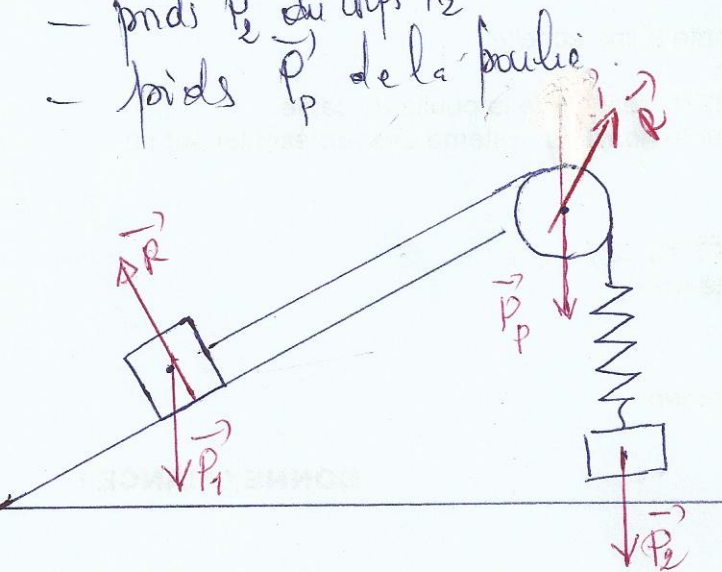 - poids P⃗₂ du corps
- poids P⃗p de la poulie.
R⃗
R⃗
P⃗p
P⃗₁
P⃗₂